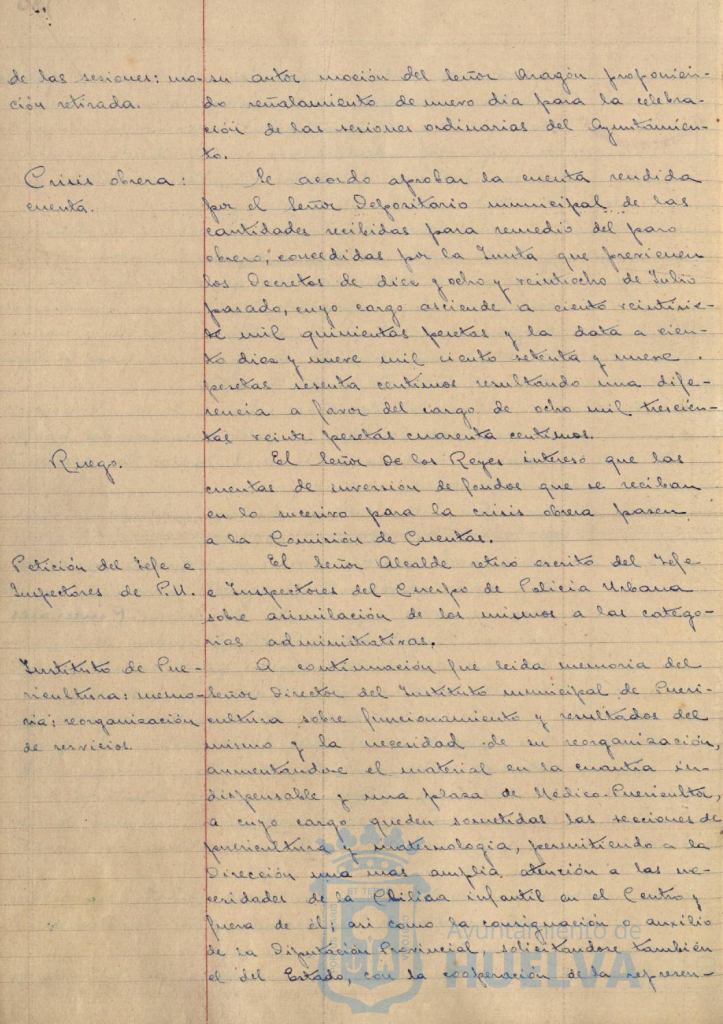 de las sesiones: mo-
ción retirada.
su autor moción del Señor Aragón proponien-
do señalamiento de nuevo dia para la celebra
ción de las sesiones ordinarias del Ayuntamien-
to.
Crisis obrera:
cuenta.
Se acordo aprobar la cuenta rendida
por el Señor Depositario municipal de las
cantidades recibidas para remedio del paro
obrero, concedidas por la Junta que previenen
los Decretos de diez y ocho y veintiocho de Julio
pasado, cuyo cargo asciende a ciento veintisie-
te mil quinientas pesetas y la data a cien-
to diez y nueve mil ciento setenta y nueve
pesetas sesenta centimos resultando una dife-
rencia a favor del cargo de ocho mil trescien-
tas veinte pesetas cuarenta centimos.
Ruego.
El Señor de los Reyes intereso que las
cuentas de inversión de fondos que se reciban
en lo sucesivo para la crisis obrera pasen
a la Comisión de Cuentas.
Petición del Jefe e
Inspectores de P.U.
El Señor Alcalde retiro escrito del Jefe
e Inspectores del Cuerpo de Policia Urbana
sobre asimilación de los mismos a las catego-
rias administrativas.
Instituto de Pue-
ricultura: memo-
ria; reorganización
de servicios.
A continuación fue leida memoria del
Señor Director del Instituto municipal de Pueri-
cultura sobre funcionamiento y resultados del
mismo y la necesidad de su reorganización,
aumentandose el material en la cuantia in-
dispensable y una plaza de Médico-Puericultor,
a cuyo cargo queden sometidas las secciones de
puericultura y maternologia, permitiendo a la
Dirección una mas amplia atención a las ne-
cesidades de la Clinica infantil en el Centro y
fuera de él; asi como la consignación o auxilio
de la Diputación Provincial, solicitandose también
el del Estado, con la cooperación de la represen-
Ayuntamiento de
HUELVA